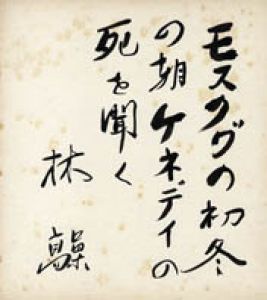 モスクワの初冬
の朝ケネディの
死を聞く
林